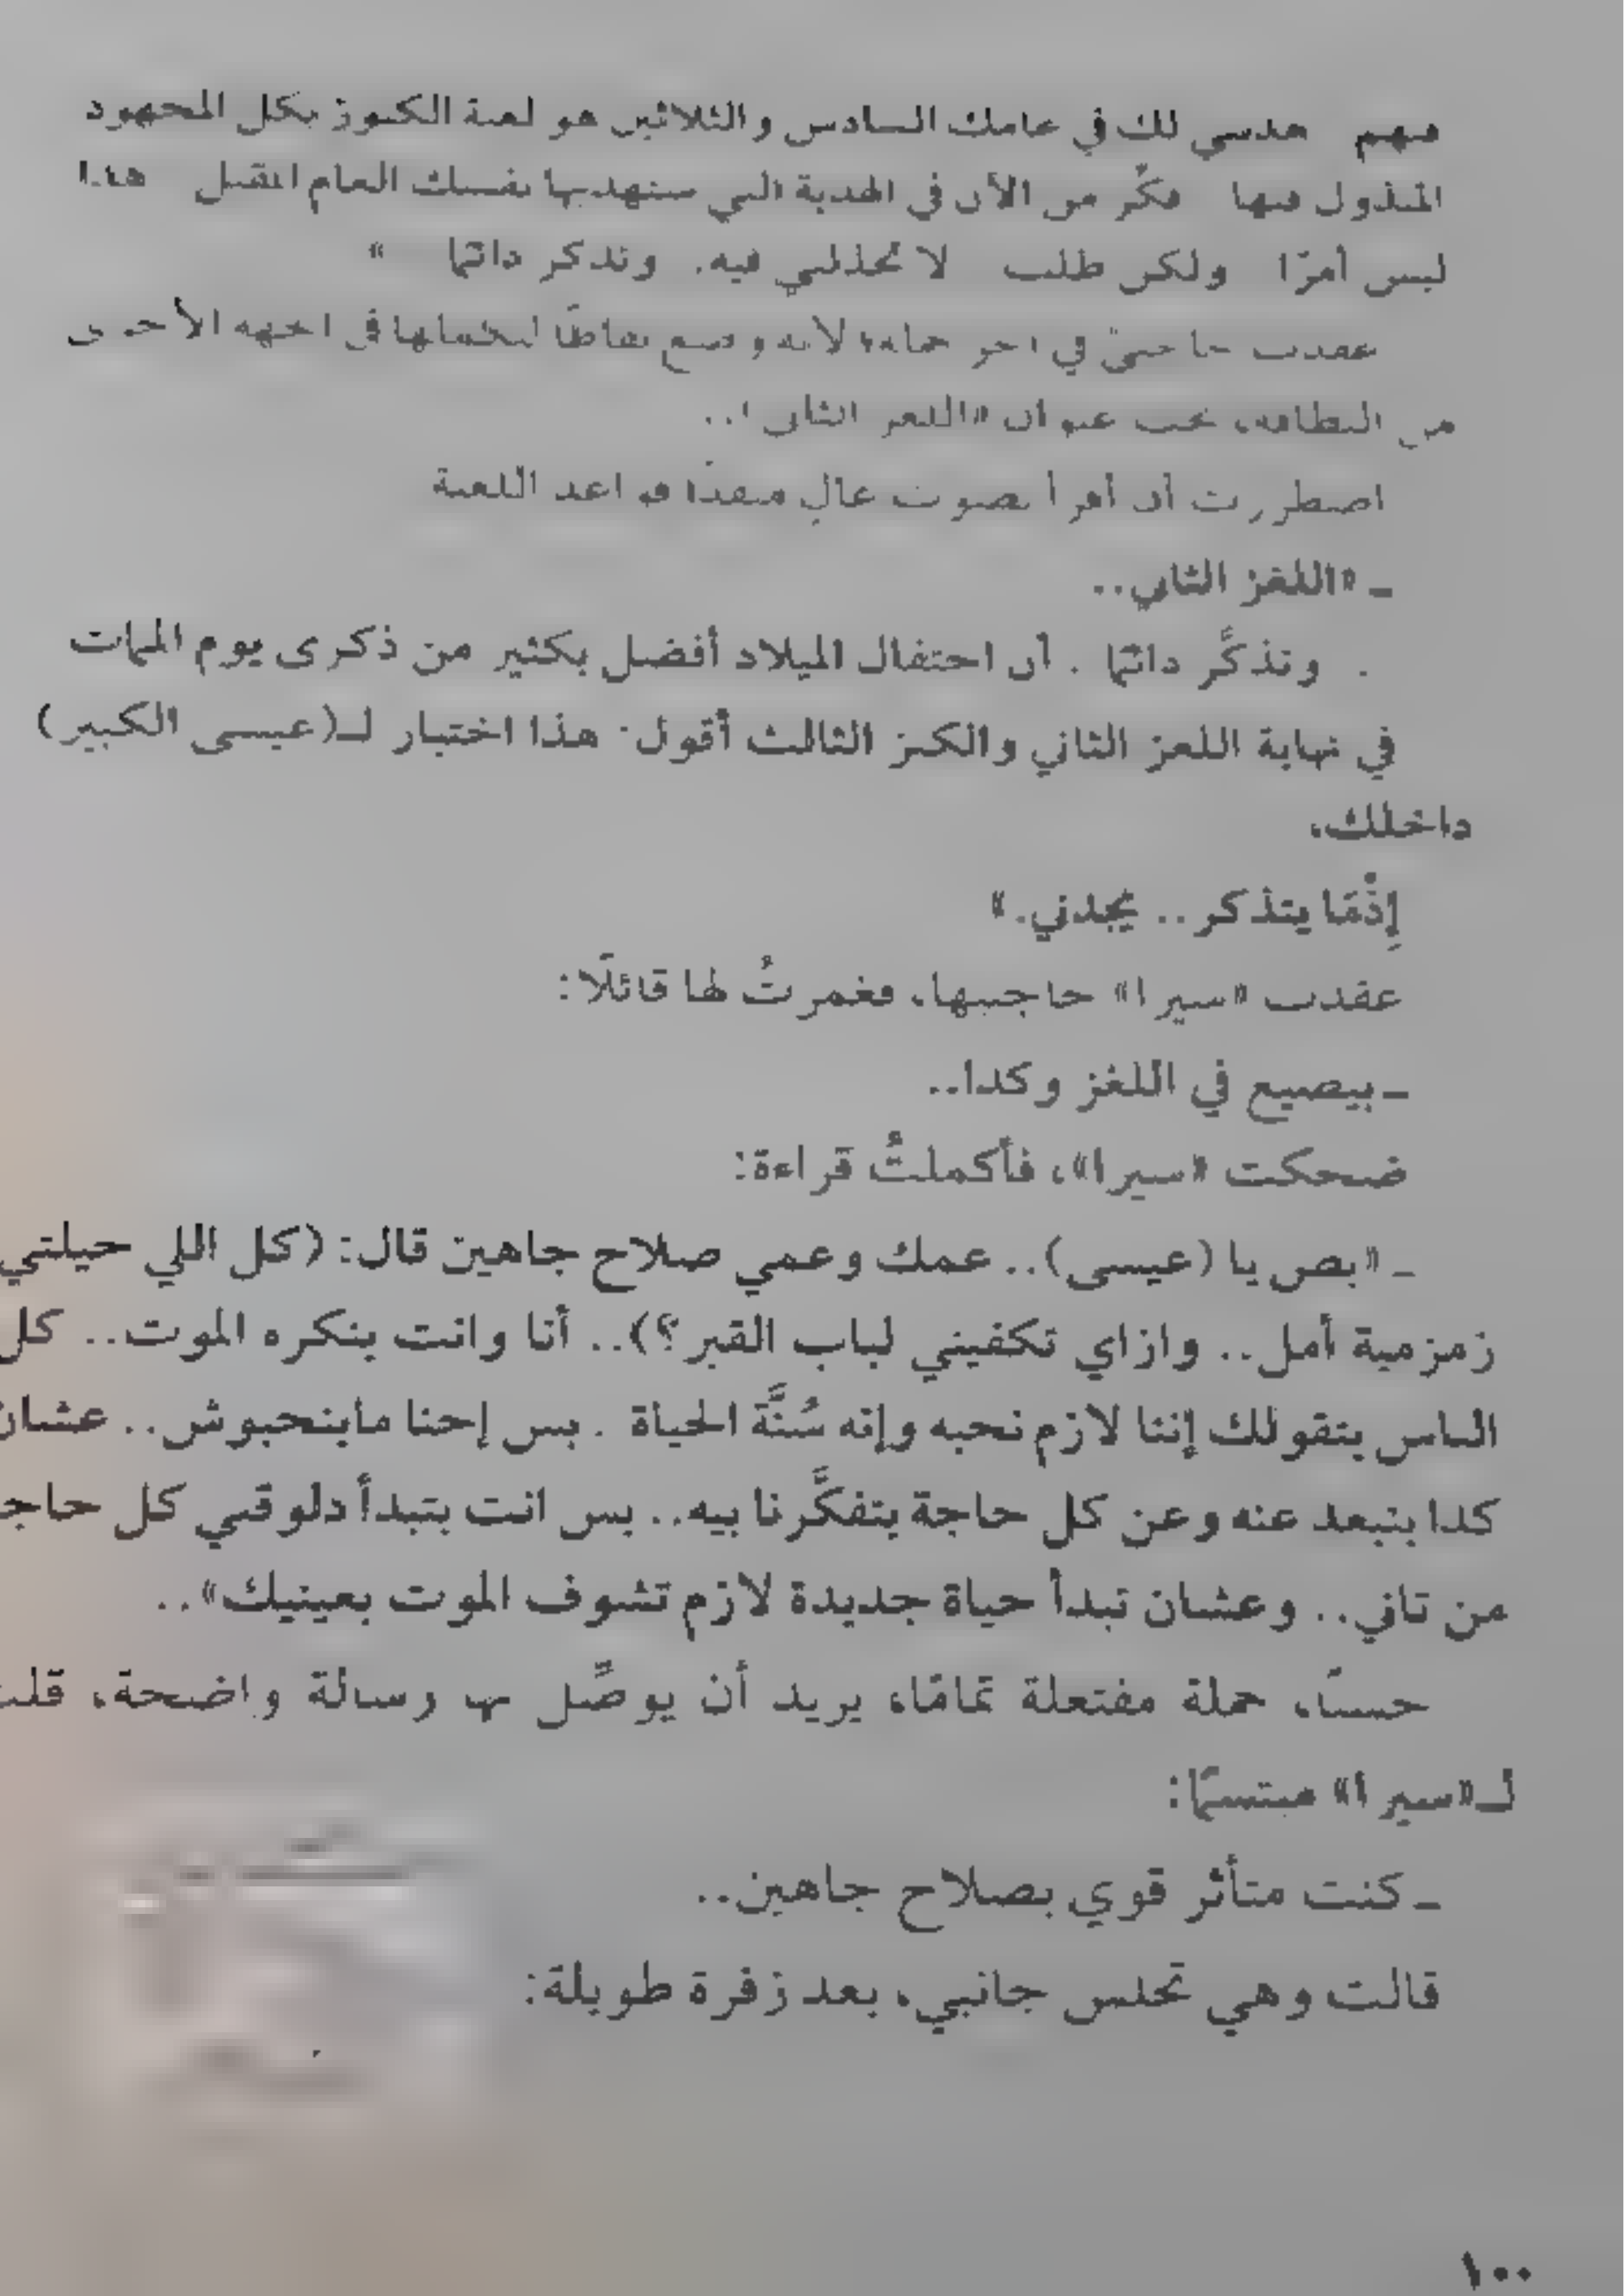 مهم هديتي لك في عامك السادس والثلاثين هو لعبة الكنوز بكل المجهود
المبذول فيها فكّر من الآن في الهدية التي ستهديها نفسك العام المقبل هذا
ليس أمرًا ولكن طلب لا تخذلني فيه. وتذكر دائمًا »
عقدت حاجبيّ في آخر جملة، لأنه وضع نقاطًا ليكملها في الجهة الأخرى
من البطاقة، تحت عنوان «اللغز الثاني»..
اضطررت أن أقرأ بصوت عالٍ منفذًا قواعد اللعبة
ـ «اللغز الثاني..
. وتذكَّر دائمًا . أن احتفال الميلاد أفضل بكثير من ذكرى يوم الممات
في نهاية اللغز الثاني والكنز الثالث أقول: هذا اختبار لـ(عيسى الكبير)
داخلك،
إِذْمَا يتذكر.. يجدني.»
عقدت «سيرا» حاجبيها، فغمزتُ لها قائلًا:
ـ بيصيع في اللغز وكدا..
ضحكت «سيرا»، فأكملتُ قراءة:
ـ «بص يا (عيسى).. عمك وعمي صلاح جاهين قال: (كل اللي حيلتي
زمزمية أمل.. وازاي تكفيني لباب القبر؟).. أنا وانت بنكره الموت.. كل
الناس بتقولك إننا لازم نحبه وإنه سُنَّة الحياة . بس إحنا مابنحبوش.. عشان
كدا بنبعد عنه وعن كل حاجة بتفكَّرنا بيه.. بس انت بتبدأ دلوقتي كل حاجة
من تاني.. وعشان تبدأ حياة جديدة لازم تشوف الموت بعينيك»..
حسنًا، جملة مفتعلة تمامًا، يريد أن يوصِّل بها رسالة واضحة، قلت
لـ«سيرا» مبتسمًا:
ـ كنت متأثر قوي بصلاح جاهين..
قالت وهي تجلس جانبي، بعد زفرة طويلة:
١٠٠